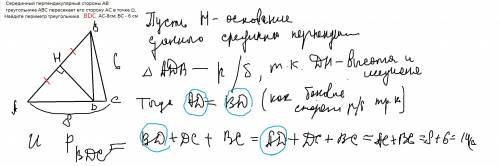 Серединный перпендикуляр стороны AB
треугольника ABC пересекает его сторону AC в точке D,
Найдите периметр треугольника BDC AC-8см; BC - 6 см
B
H
6
A
D
C
8
Пусть H - основание
данного средин перпенд
△ADB — р/б, т.к. DH - высота и
медиана
Тогда AD = BD (как боковые
стороны р/б тр-к)
и P BDC = BD + DC + BC = AD + DC + BC = AC + BC = 8 + 6 = 14